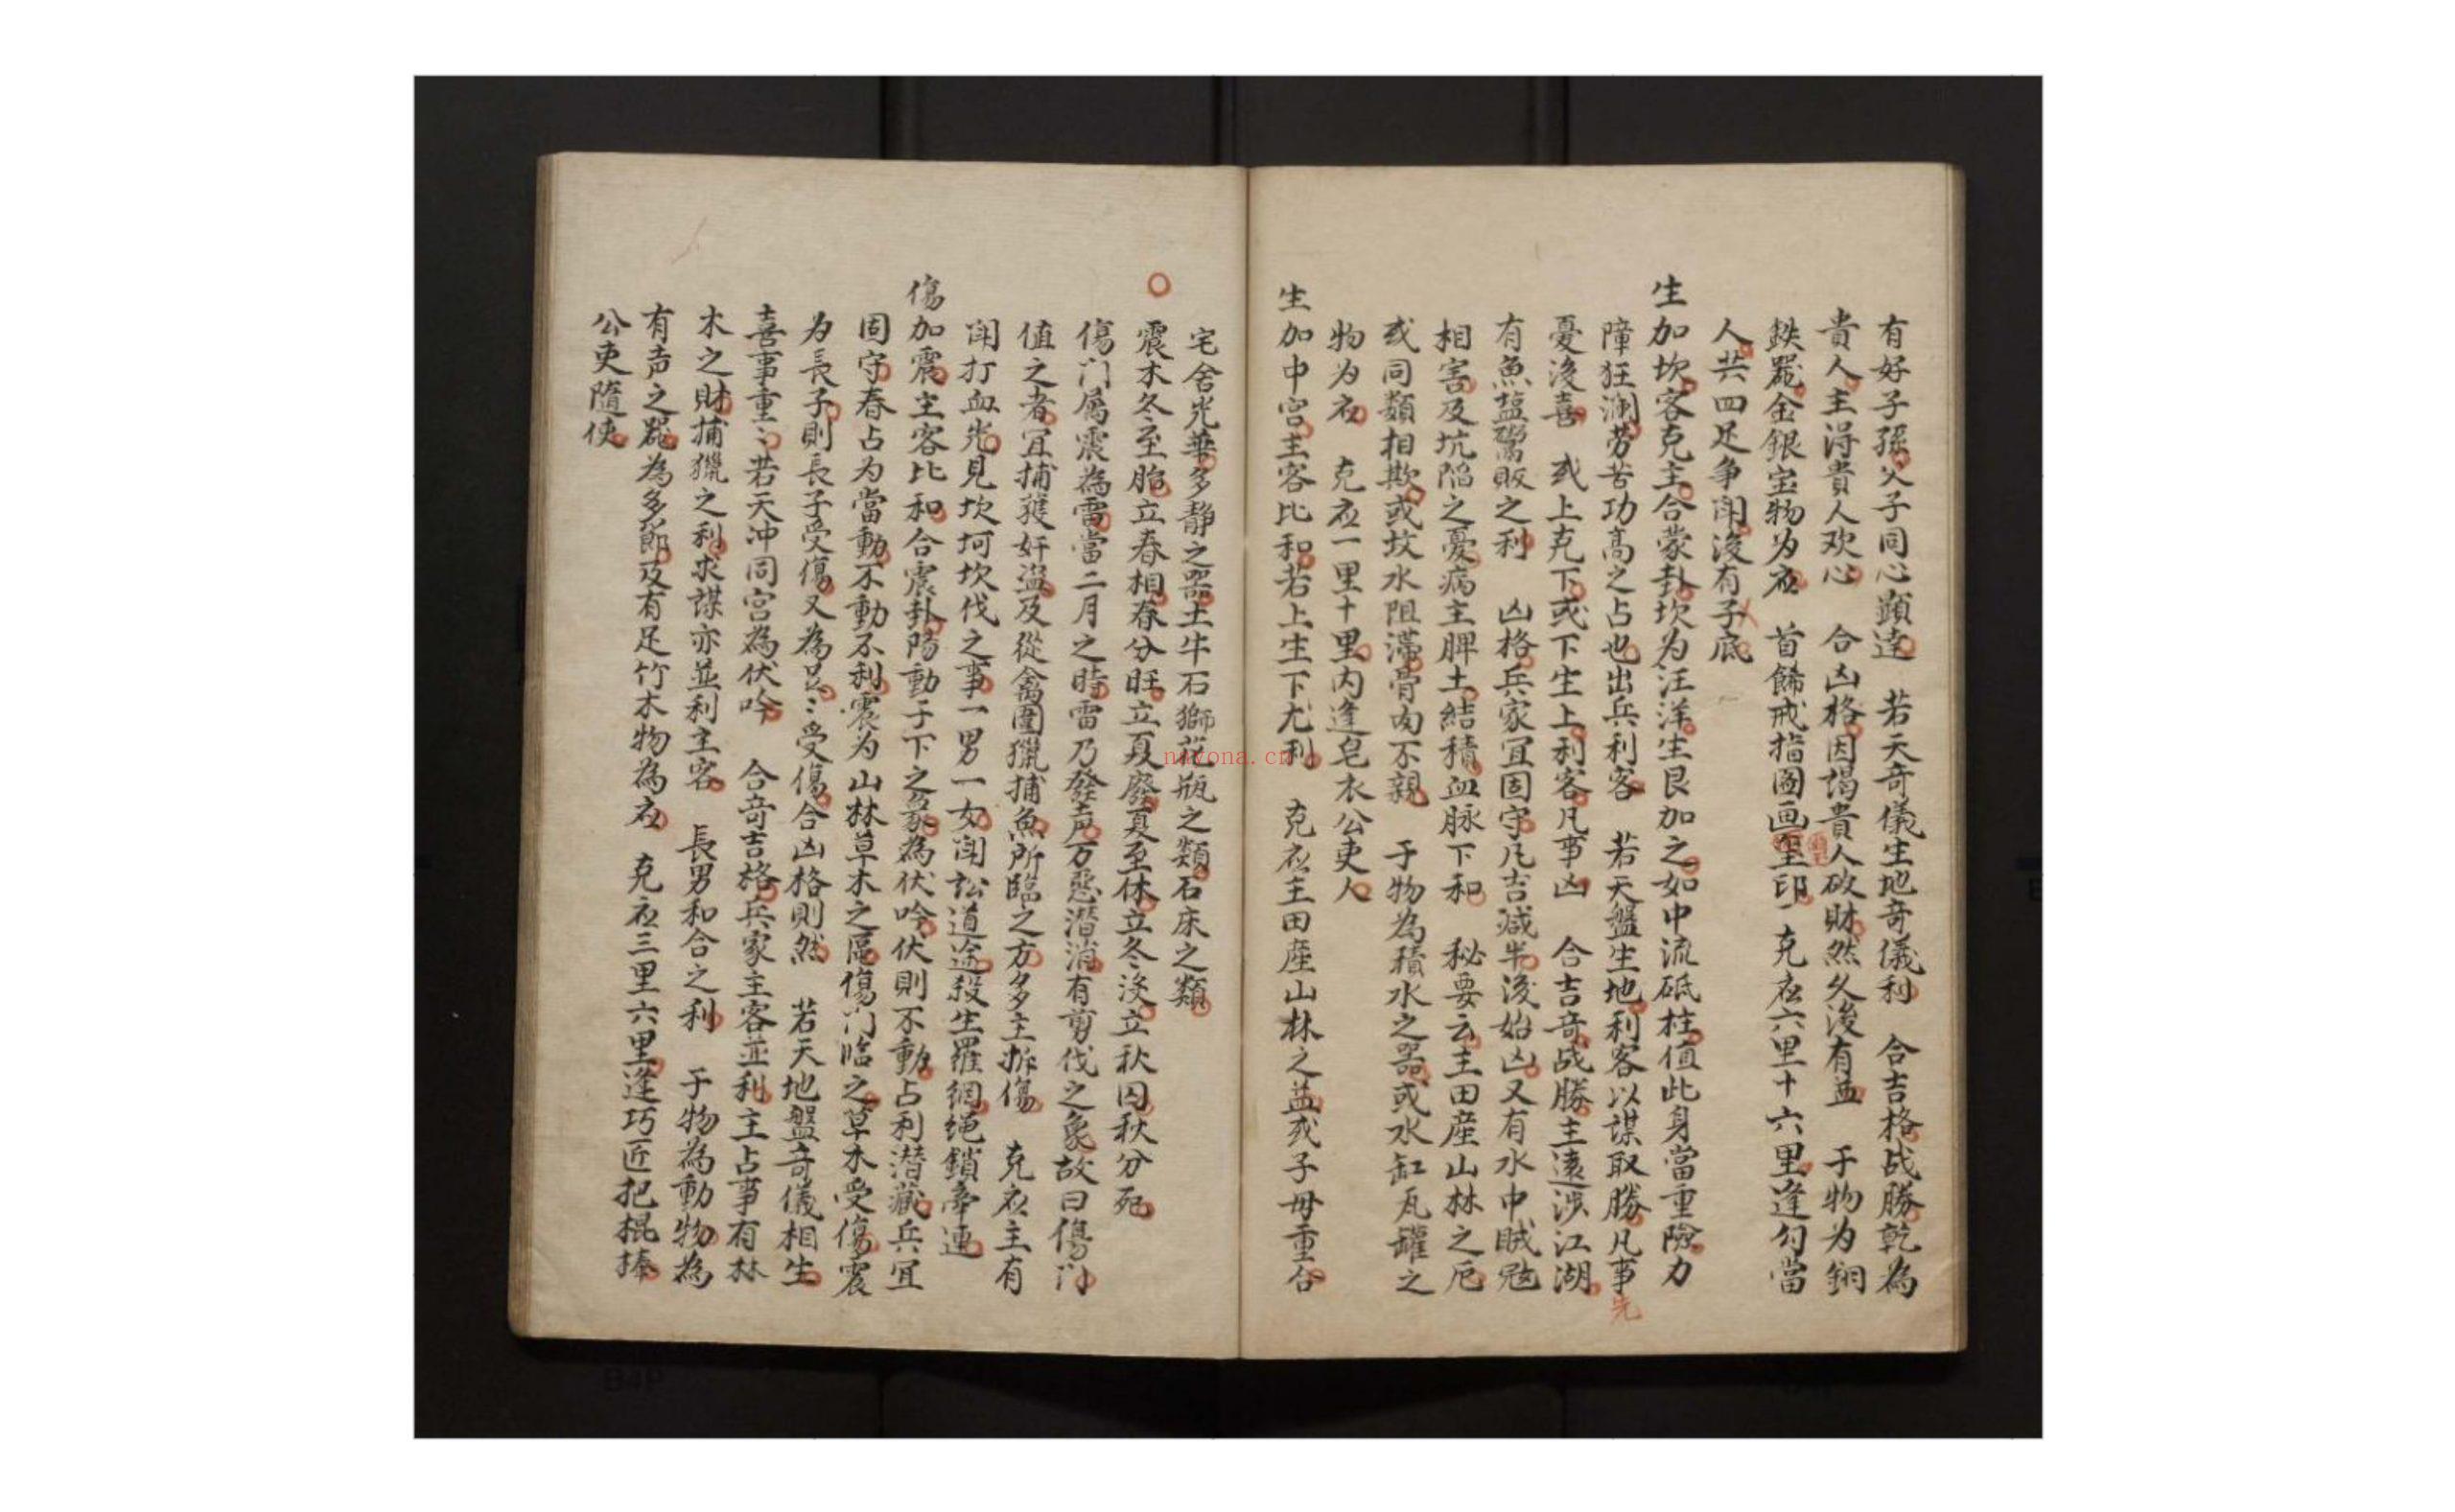 有好子孫父子同心顕達　若天奇儀生地奇儀利　合吉格战勝乾為
貴人主淂貴人欢心　合凶格因謁貴人破財然久後有益　于物为銅
鉄器金銀宝物为应　首餙戒指圖画里印　克应六里十六里逢勾當
人共四足争闹後有子底
生加坎客克主合蒙卦坎为汪洋生艮加之如中流砥柱值此身當重險力
障狂瀾劳苦功高之占也出兵利客　若天盤生地利客以謀取勝凡事先
憂後喜　或上克下或下生上利客凡事凶　合吉奇战勝主遠涉江湖
有魚塩鬻販之利　凶格兵家宜固守凡吉减半後始凶又有水中賊尅
相害及坑陷之憂病主脾土結積血脉下和　秘要云主田産山林之厄
或同類相欺或坟水阻滞骨肉不親　于物為積水之器或水缸瓦罐之
物为应　克应一里十里内逢皂衣公吏人
生加中宫主客比和若上生下尤利　克应主田産山林之益或子母重合
宅舍光華多静之器土牛石獅花瓶之類石床之類
震木冬至胎立春相春分旺立夏廢夏至休立冬没立秋囚秋分死
傷门属震為雷當二月之時雷乃發声万惡潜消有剪伐之象故曰傷门
值之者宜捕獲奸盗及從禽圍獵捕魚所臨之方多主拆傷　克应主有
闹打血光見坎坷坎伐之事一男一女闹訟道途殺生羅網绳鎖牽連
傷加震主客比和合震卦陽動于下之象為伏吟伏則不動占利潜藏兵宜
固守春占为當動不動不利震为山林草木之區傷门临之草木受傷震
为長子則長子受傷又為足〻受傷合凶格則然　若天地盤奇儀相生
喜事重〻若天冲同宫為伏吟　合奇吉格兵家主客並利主占事有林
木之財捕獵之利求謀亦並利主客　長男和合之利　于物為動物為
有声之器為多節及有足竹木物為应　克应三里六里逢巧匠把棍捧
公吏隨使
nayona.cn